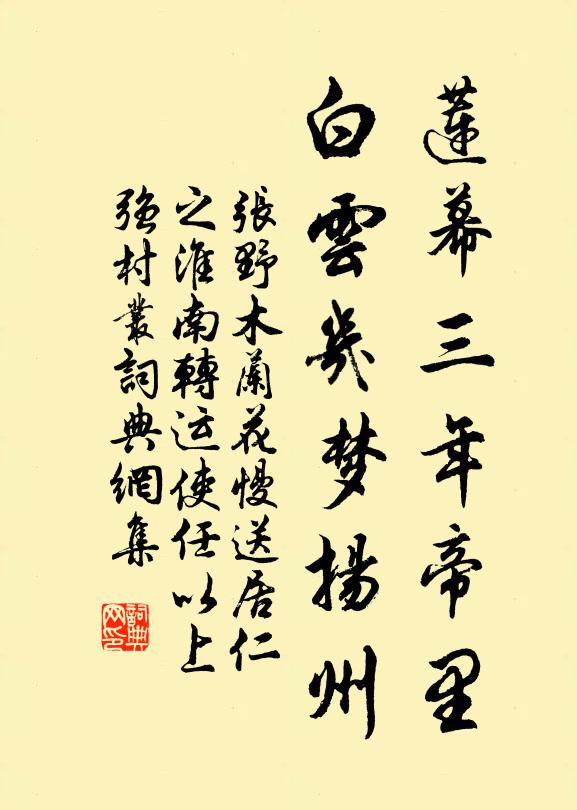 蓮幕三年帝里
白雲幾梦揚州
張野木蘭花慢送居仁
之淮南轉运使任以上
强村叢詞典網集
詞典
网印